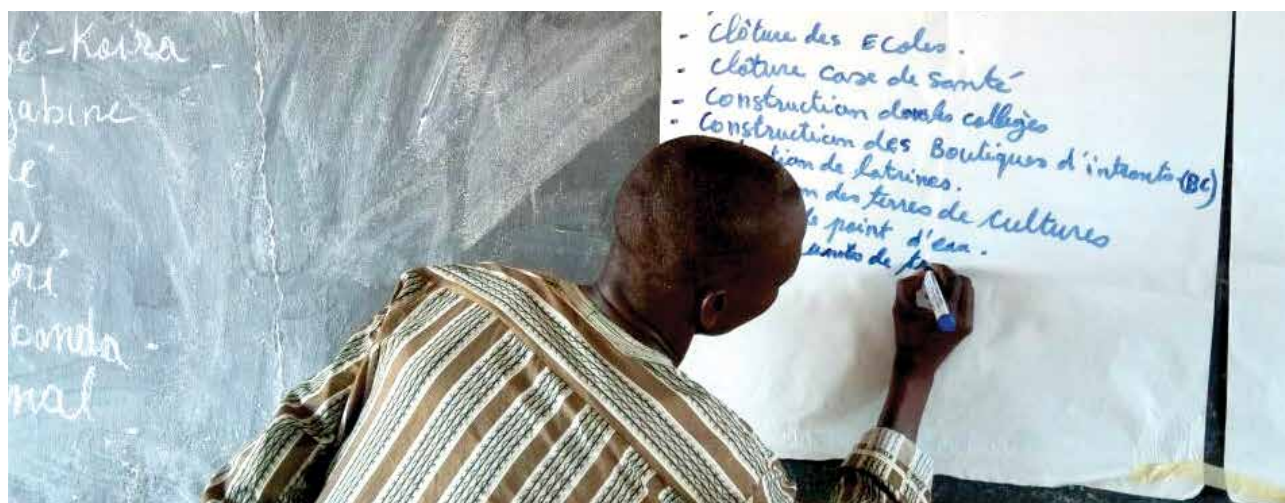 é-Koira
gabine
ri
banda.
mal
- Clôture des Ecoles.
- clôture case de santé
- Construction collèges
- Construction des Boutiques d'intrants (BC)
tion de latrines.
n des terres de cultures
point d'eau.
de